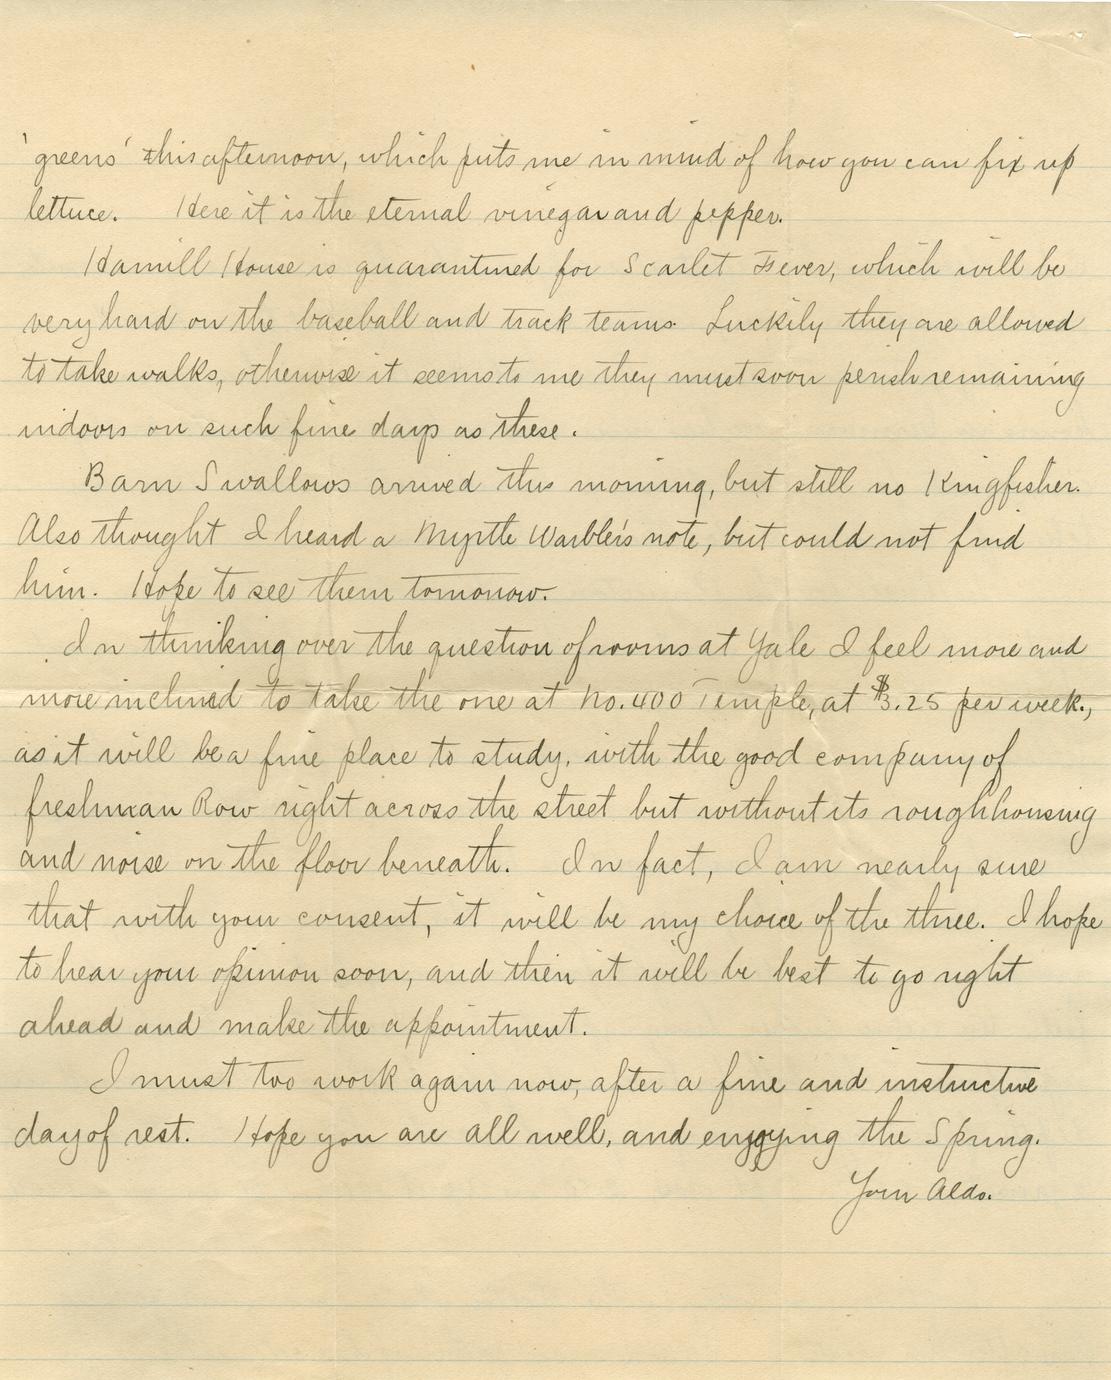 'greens' this afternoon, which puts me in mind of how you can fix up
lettuce. Here it is the eternal vinegar and pepper.
Hamill House is quarantined for Scarlet Fever, which will be
very hard on the baseball and track teams. Luckily they are allowed
to take walks, otherwise it seems to me they must soon perish remaining
indoors on such fine days as these.
Barn Swallows arrived this morning, but still no Kingfisher.
Also thought I heard a Myrtle Warbler's note, but could not find
him. Hope to see them tomorrow.
In thinking over the question of rooms at Yale I feel more and
more inclined to take the one at No. 400 Temple, at $3.25 per week.,
as it will be a fine place to study, with the good company of
freshman Row right across the street but without its roughhousing
and noise on the floor beneath. In fact, I am nearly sure
that with your consent, it will be my choice of the three. I hope
to hear your opinion soon, and then it will be best to go right
ahead and make the appointment.
I must too work again now, after a fine and instructive
day of rest. Hope you are all well, and enjoying the Spring.
Your Aldo.